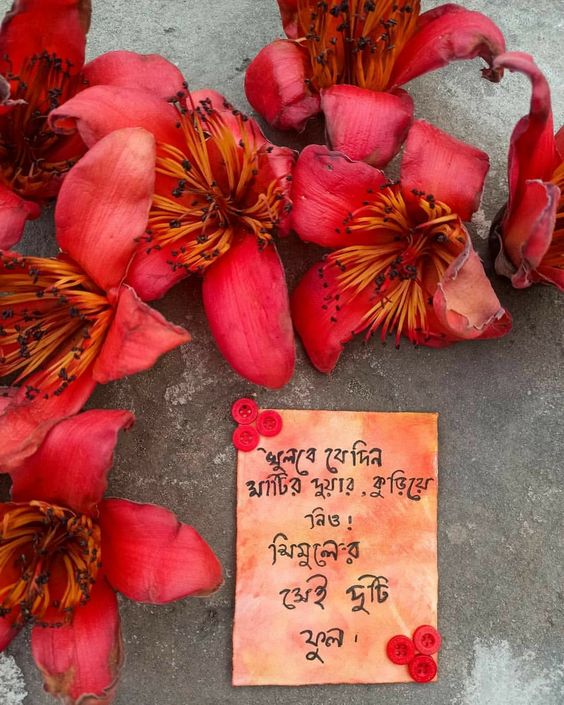 খুলবে যেদিন
মাটির দুয়ার, কুড়িয়ে
নিও!
শিমুলে-র
সেই দুটি
ফুল।